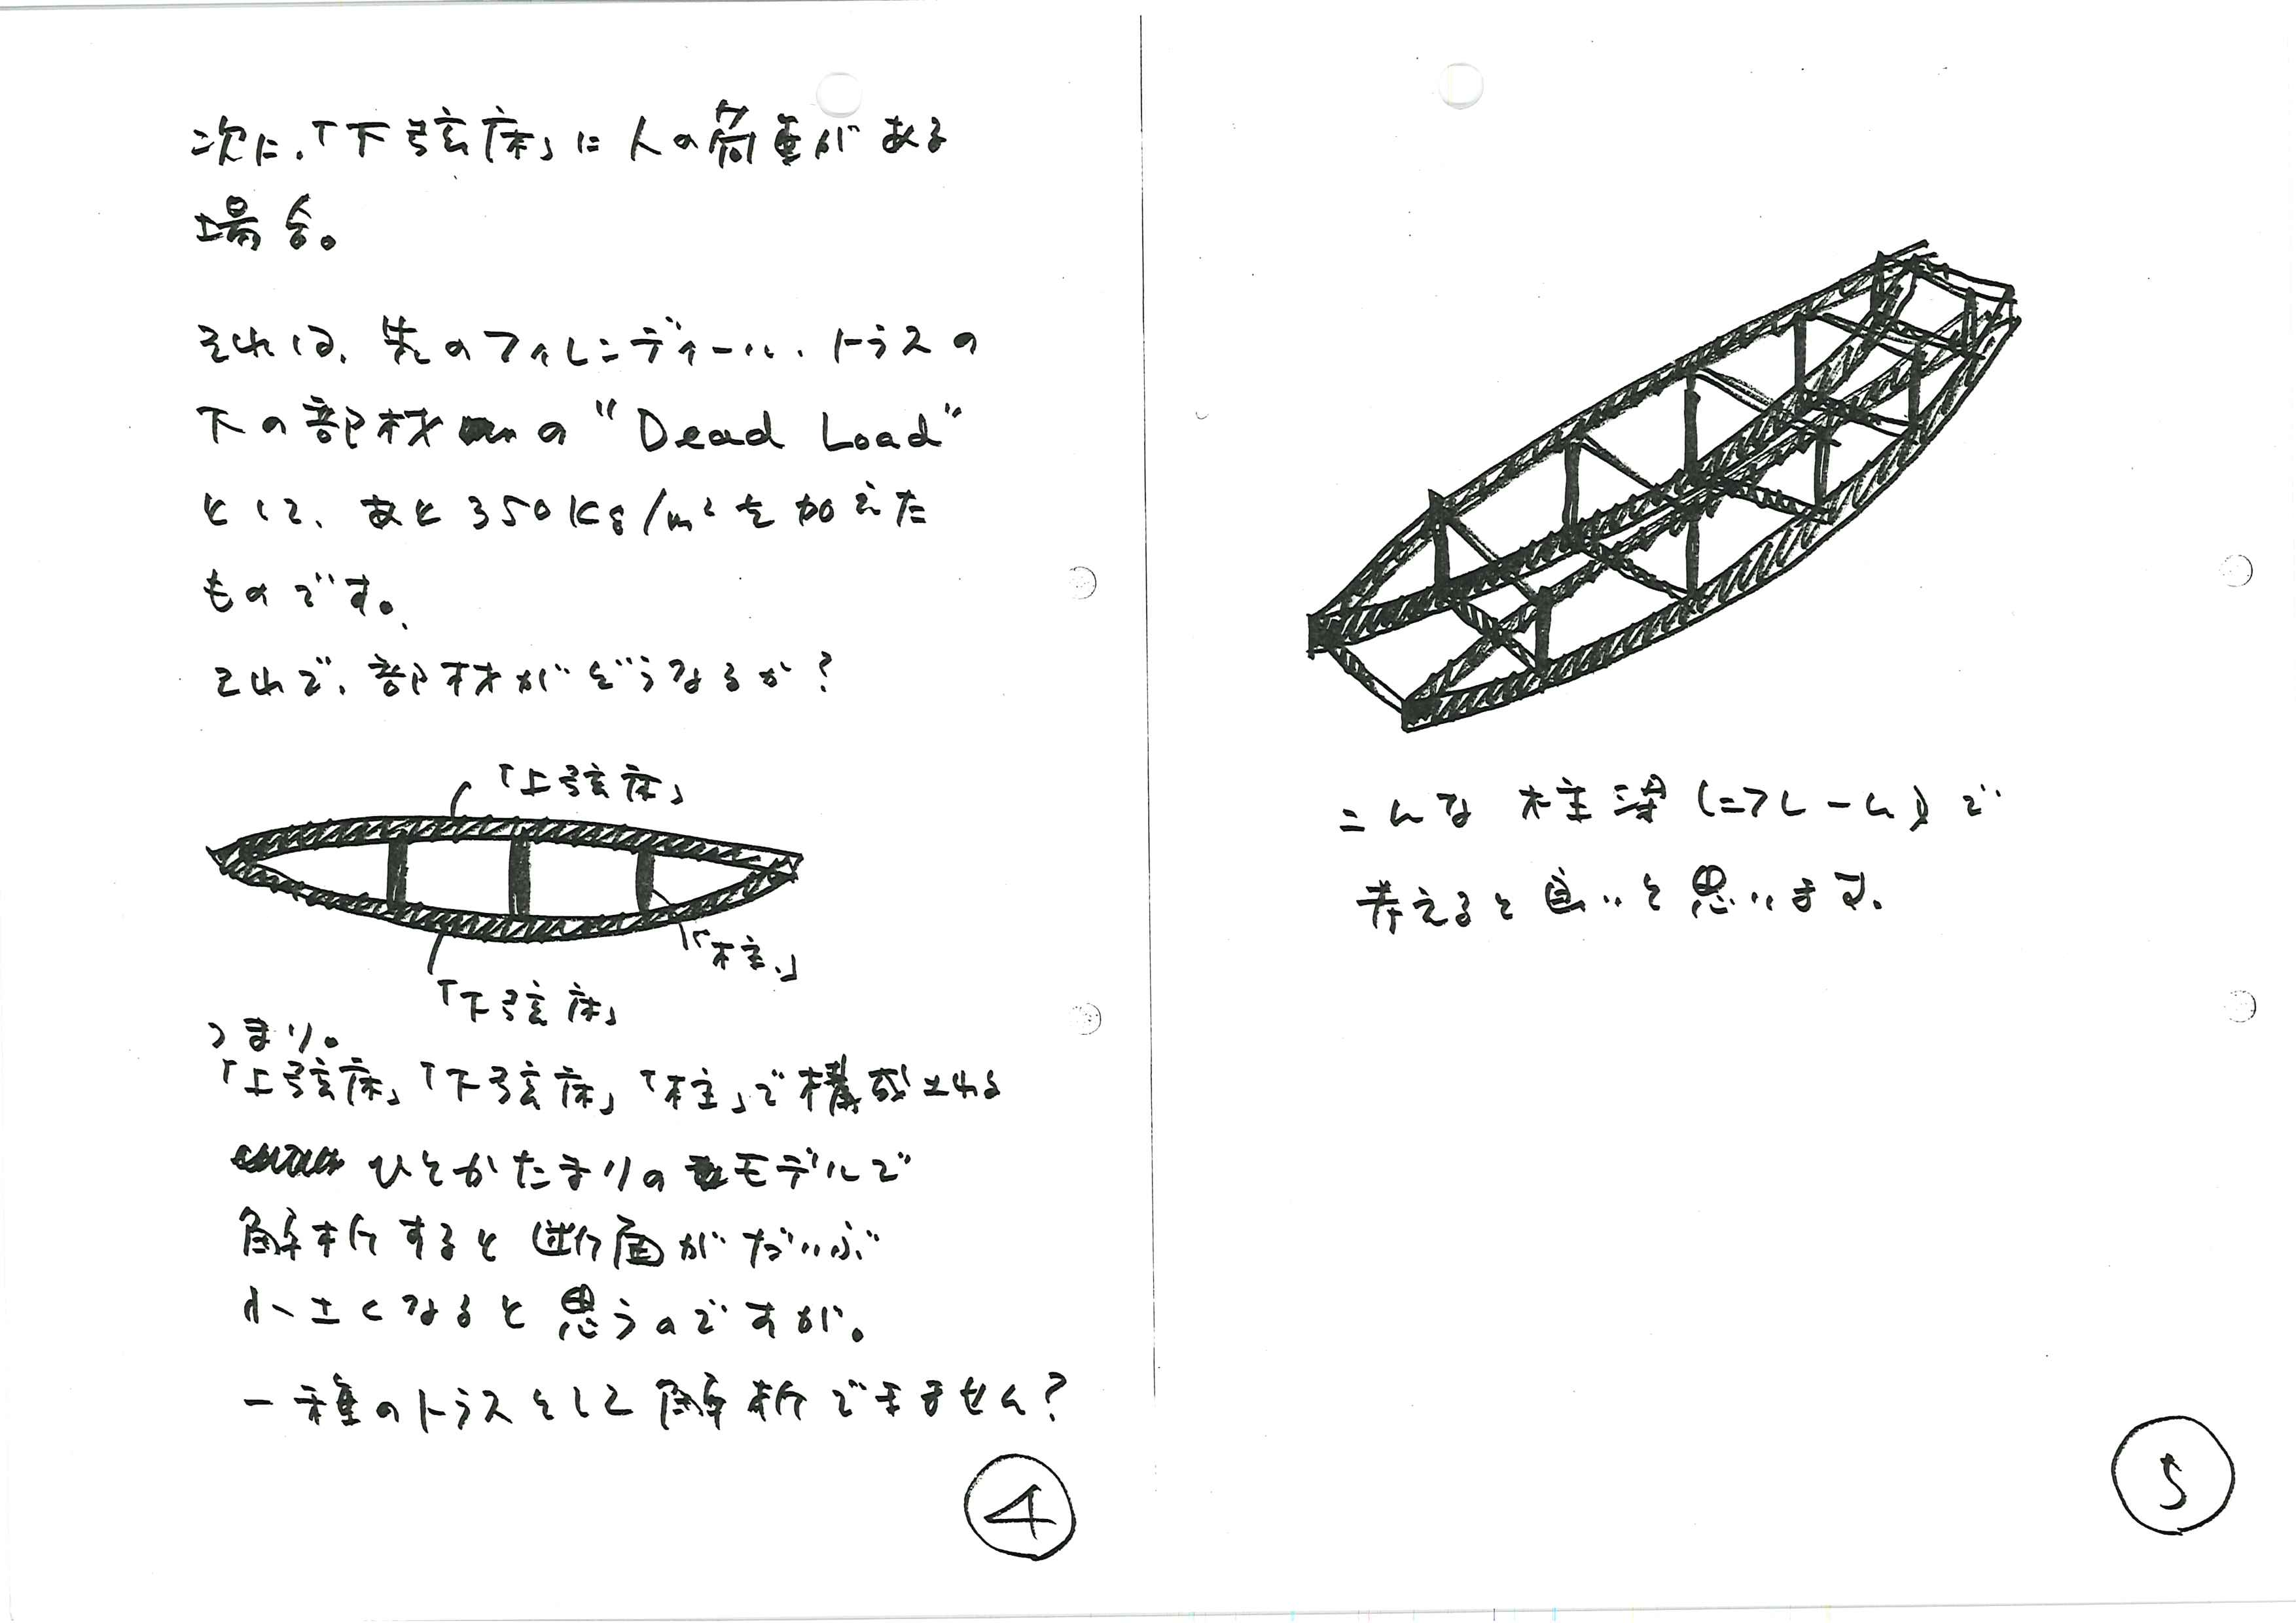 次に、「下弦床」に人の荷重がある
場合。
それは、先のフィレンディール・トラスの
下の部材の "Dead Load"
として、あと350Kg/m²を加えた
ものです。
それで、部材がどうなるか?
「上弦床」
「柱」
「下弦床」
つまり。
「上弦床」「下弦床」「柱」で構成される
ひとかたまりのモデルで
解析すると断面がだいぶ
小さくなると思うのですが。
一種のトラスとして解析できません?
4
こんな柱梁(=フレーム)で
考えると良いと思います。
5